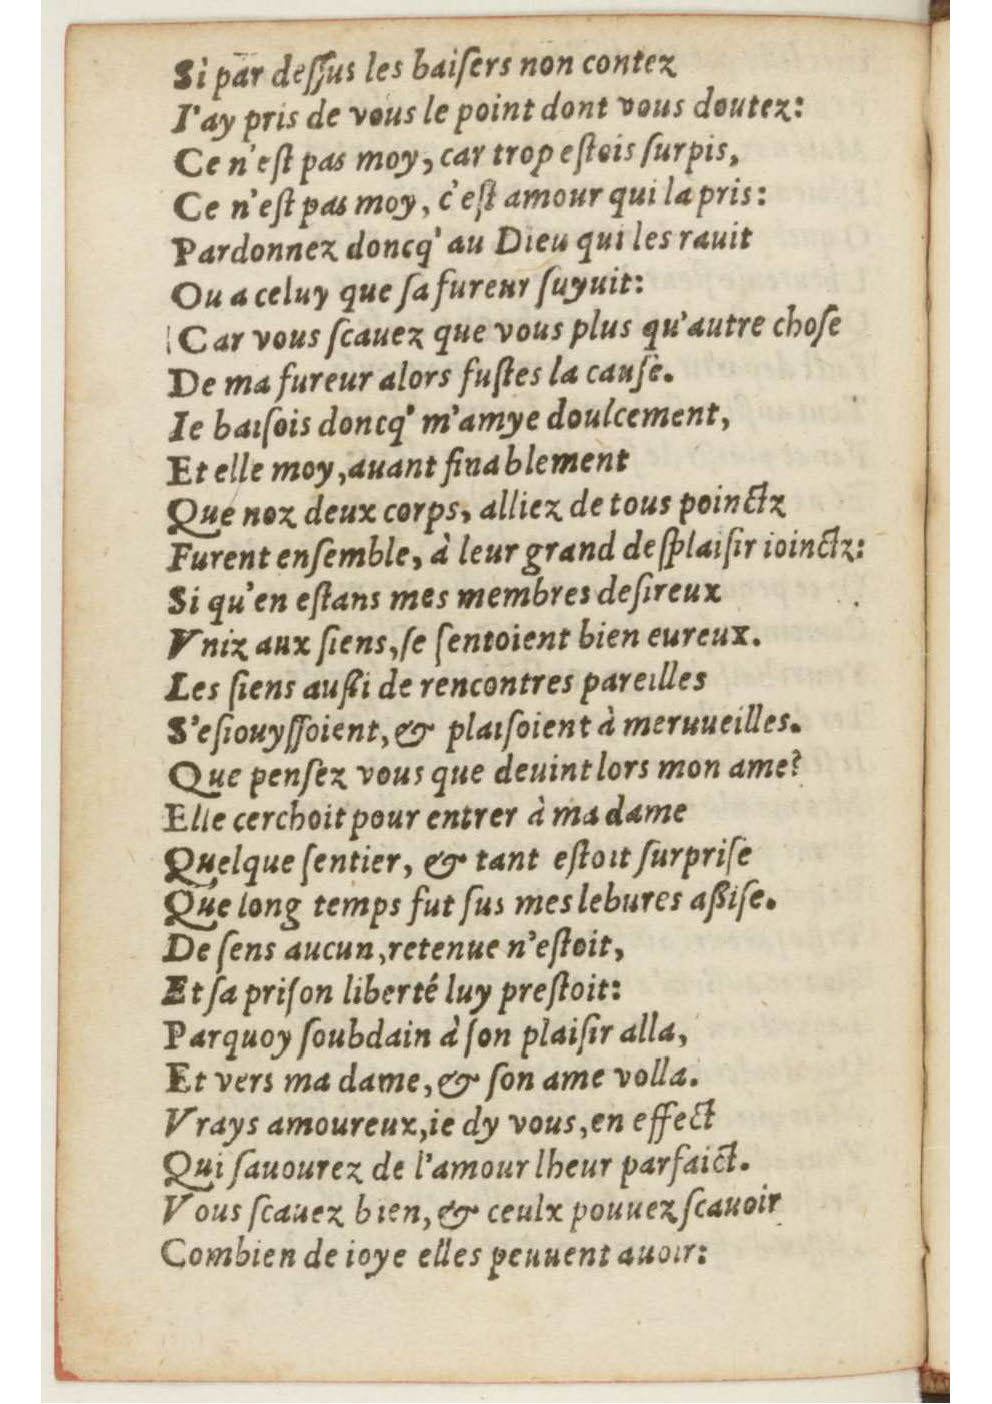 Si par deſſus les baiſers non contez
I'ay pris de vous le point dont vous doutez:
Ce n'eſt pas moy, car trop eſtois ſurpis,
Ce n'eſt pas moy, c'eſt amour qui la pris:
Pardonnez doncq' au Dieu qui les rauit
Ou a celuy que ſa fureur ſuyuit:
Car vous ſcauez que vous plus qu'autre choſe
De ma fureur alors fuſtes la cauſe.
Ie baiſois doncq' m'amye doulcement,
Et elle moy, auant finablement
Que noz deux corps, alliez de tous poinctz
Furent enſemble, à leur grand deſplaiſir ioinctz:
Si qu'en eſtans mes membres deſireux
Vniz aux ſiens, ſe ſentoient bien eureux.
Les ſiens auſſi de rencontres pareilles
S'eſiouyſſoient, & plaiſoient à meruueilles.
Que penſez vous que deuint lors mon ame?
Elle cerchoit pour entrer à ma dame
Quelque ſentier, & tant eſtoit ſurpriſe
Que long temps fut ſus mes lebures aſſiſe.
De ſens aucun, retenue n'eſtoit,
Et ſa priſon liberté luy preſtoit:
Parquoy ſoubdain à ſon plaiſir alla,
Et vers ma dame, & ſon ame volla.
Vrays amoureux, ie dy vous, en effect
Qui ſauourez de l'amour lheur parfaict.
Vous ſcauez bien, & ceulx pouuez ſcauoir
Combien de ioye elles peuuent auoir: